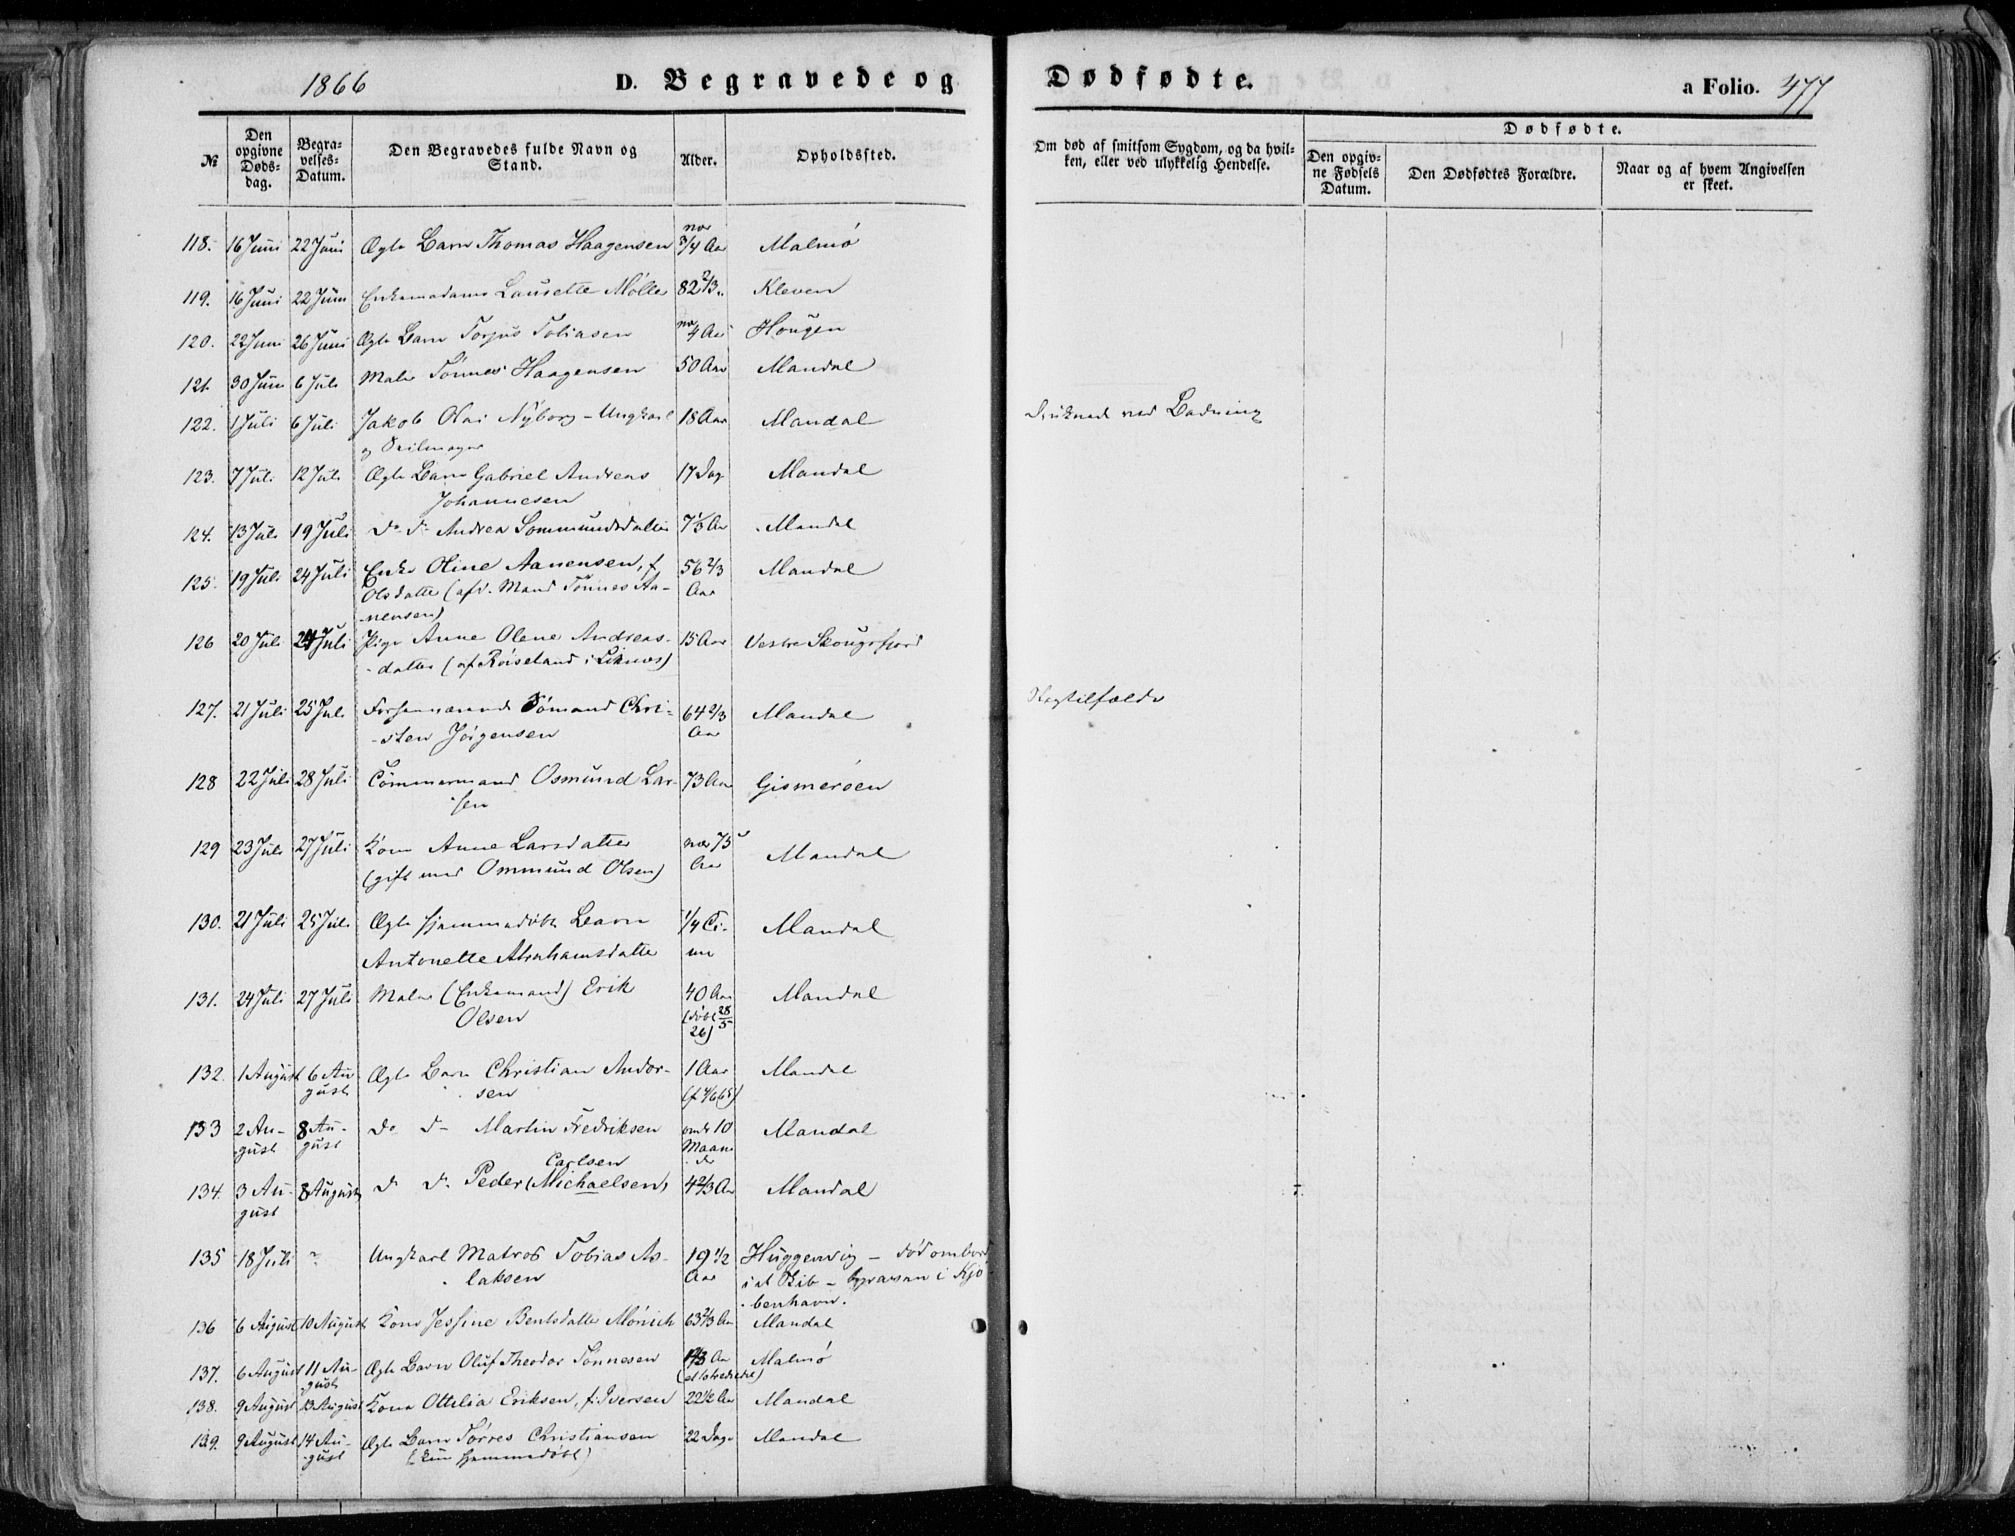 1866 D. Begravede og Dødfødte. a Folio. 477
№ Den opgivne Døds-dag. Begra-velses-Datum. Den Begravedes fulde Navn og Stand. Alder. Opholdssted. Om død af smitsom Sygdom, og da hvil-ken, eller ved ulykkelig Hendelse. Dødfødte. Den opgiv-ne Fødsels Datum. Den Dødfødtes Forældre. Naar og af hvem Angivelsen er skeet.
118. 16 Juni 22 Juni Ægte Barn Thomas Haagensen nær 3/4 Aar Malmø
119. 16 Juni 22 Juni Enkemadame Lausette Mølle 82 2/3 Kleven
120. 22 Juni 26 Juni Ægte Barn Torjus Tobiasen nær 4 Aar Hougen
121. 30 Juni 6 Juli Maler Tønnes Haagensen 50 Aar Mandal
122. 1 Juli 6 Juli Jakob Olai Nyborg - Ungkarl 18 Aar Mandal Druknet ved Badning
og Seilmager
123. 7 Juli 12 Juli Ægte Barn Gabriel Andreas 17 Dage Mandal
Johannesen
124. 13 Juli 19 Juli Do Do Andrea Sommundsdatter 7 1/3 Aar Mandal
125. 19 Juli 24 Juli Enke Oline Aanensen, f. 56 2/3 Mandal
Olsdatter (afd. Mand Tønnes Aa- Aar
nensen)
126 20 Juli 24 Juli Pige Anne Olene Andreas- 15 Aar Vestre Skougsfjord
datter (af Røiseland i Liknes)
127. 21 Juli 25 Juli Forhenværende Sømand Chri- 64 2/3 Mandal Slagtilfælde
sten Jørgensen Aar
128 22 Juli 28 Juli Tømmermand Osmund Lar- 73 Aar Gismerøen
sen
129 23 Juli 27 Juli Kone Anne Larsdatter nær 75 Mandal
(gift med Ommund Olsen) Aar
130. 21 Juli 25 Juli Ægte hjemmedøbt Barn 1/4 Ti- Mandal
Antonette Abrahamsdatter me
131. 24 Juli 27 Juli Maler (Enkemand) Erik 40 Aar Mandal
Olsen (døbt 28/5
26)
132. 1 August 6 Au- Ægte Barn Christian Andor- 1 Aar Mandal
gust sen (f. 4/6 65)
133 2 Au- 8 Au- Do Do Martin Fredriksen omtr 10 Mandal
gust gust Maane
der
Carlsen
134. 3 Au- 8 August D. D. Peder (Michaelsen) 4 2/3 Aar Mandal
gust
135 18 Juli ? Ungkarl Matros Tobias As- 19 1/2 Huggenvig - død ombord
laksen Aar i et Skib - begraven i Kjø-
benhavn.
136 6 August 10 August Kone Jessine Bentsdatter Mønich 63 2/3 Aar Mandal
137. 6 August 11 Au- Ægte Barn Oluf Theodor Tønnesen 1 2/3 Aar Malmø
gust
138. 9 August 13 August Kone Ottilia Eriksen, f. Iversen 22 1/2 Aar Mandal
139. 9 August 14 Au- Ægte Barn Tørres Christiansen 22 Dage Mandal
gust (kun hjemmedøbt)